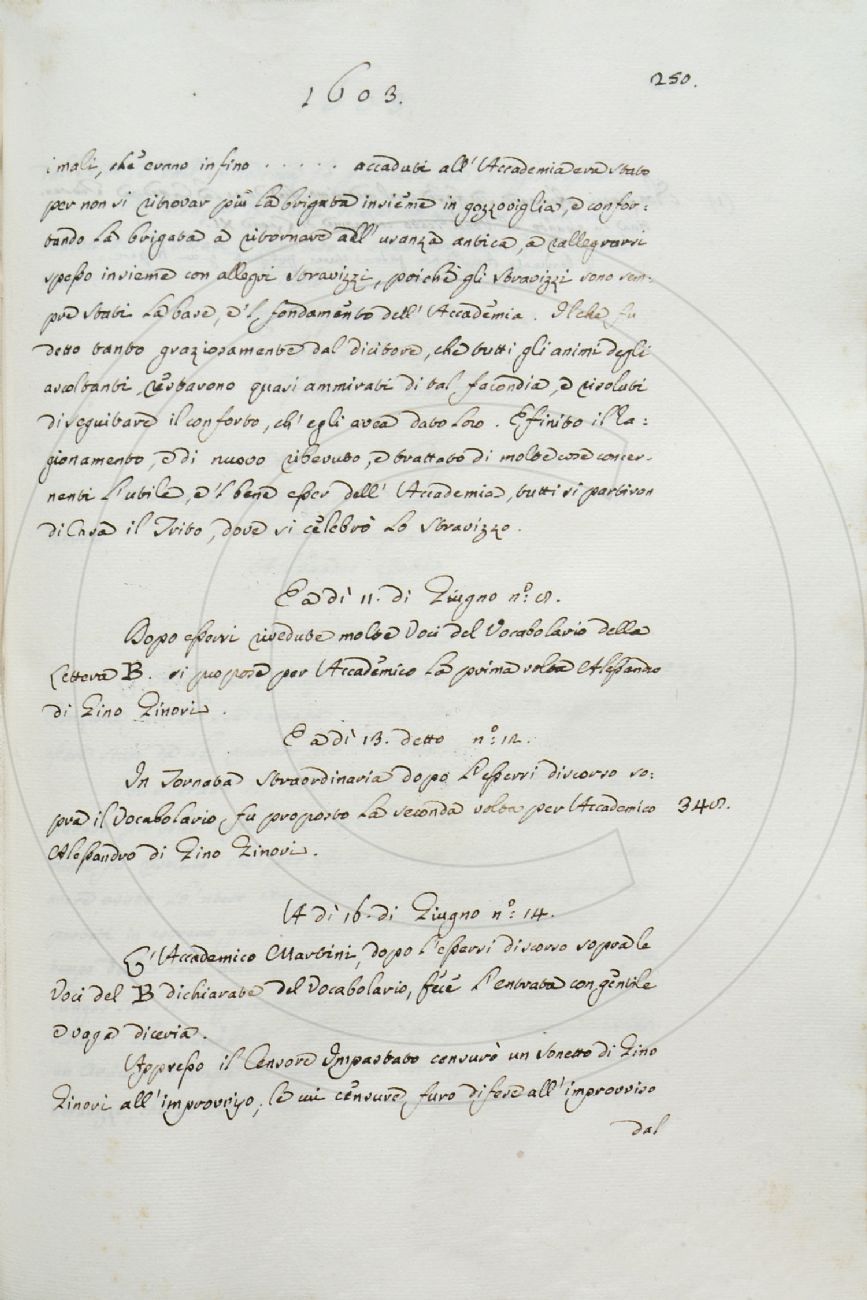 1603.
250.
i mali, che erano infino . . . . . accaduti all'Accademia era stato
per non si ritrovar più la brigata insieme in gozzoviglia, e confor:
tando la brigata a ritornare all'usanza antica, a rallegrarsi
spesso insieme con allegri stravizzi, poichè gli stravizzi sono sem:
pre stati la base, e 'l fondamento dell'Accademia. Il che fu
detto tanto graziosamente dal dicitore, che tutti gli animi degli
ascoltanti, restarono quasi ammirati di tal facondia, e risoluti
di seguitare il conforto, ch'egli avea dato loro. E finito il ra:
gionamento, e di nuovo ribevuto, e trattato di molte cose concer-
nenti l'utile, e 'l bene esser dell'Accademia, tutti si partiron
di Casa il Trito, dove si celebrò lo stravizzo.
E a dì 11. di Giugno n.° 8.
Dopo essersi rivedute molte Voci del Vocabolario della
Lettera B. si propose per Accademico la prima volta Alessandro
di Gino Ginori.
E a dì 13. detto n.° 12.
In Tornata straordinaria dopo l'essersi discorso so:
pra il Vocabolario, fu proposto la seconda volta per Accademico 348.
Alessandro di Gino Ginori.
A dì 16. di Giugno n.° 14.
L'Accademico Martini, dopo l'essersi discorso sopra le
Voci del B dichiarate del Vocabolario, fece l'entrata con gentile
e vaga diceria.
Appresso il Censore Impastato censurò un sonetto di Gino
Ginori all'improvviso, le cui censure furo difese all'improvviso
dal